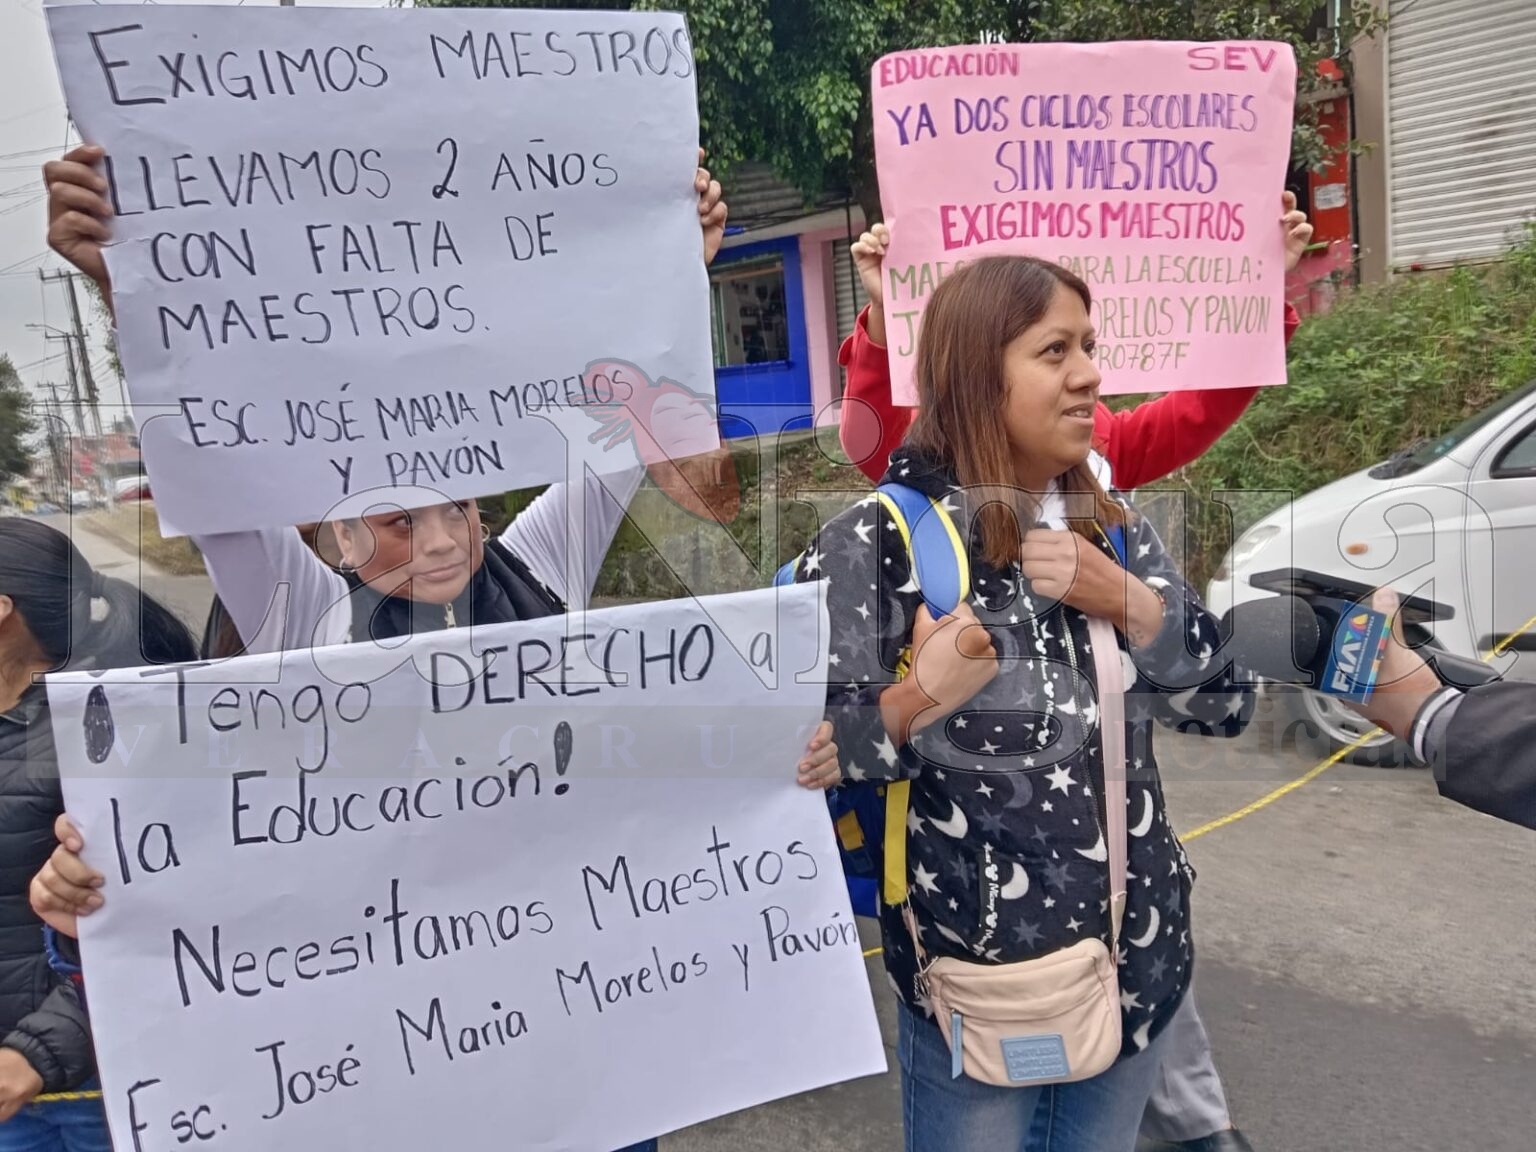 EXIGIMOS MAESTROS
LLEVAMOS 2 AÑOS
CON FALTA DE
MAESTROS.
ESC. JOSÉ MARIA MORELOS
Y PAVÓN
EDUCACIÓN SEV
YA DOS CICLOS ESCOLARES
SIN MAESTROS
EXIGIMOS MAESTROS
PARA LA ESCUELA:
MORELOS Y PAVON
PR0787F
¡Tengo DERECHO a
la Educación!
Necesitamos Maestros
Esc. José Maria Morelos y Pavón
La Nigua
VERACRUZ noticias
LIMITLESS
LIMITLESS
LIMITLESS